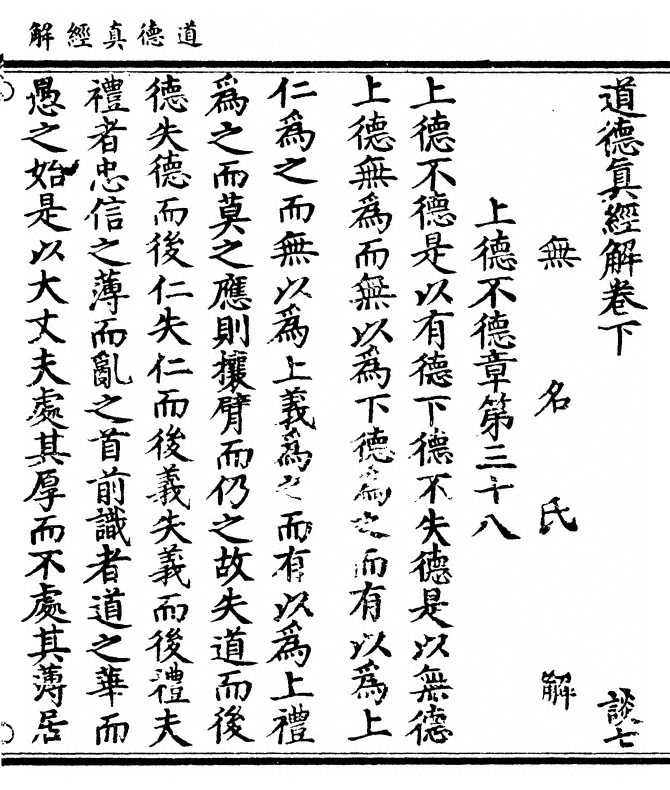 道德真經解
道德真經解卷下 談七
無名氏解
上德不德章第三十八
上德不德是以有德下德不失德是以無德
上德無為而無以為下德為之而有以為上
仁為之而無以為上義為之而有以為上禮
為之而莫之應則攘臂而仍之故失道而後
德失德而後仁失仁而後義失義而後禮夫
禮者忠信之薄而亂之首前識者道之華而
愚之始是以大丈夫處其厚而不處其薄居